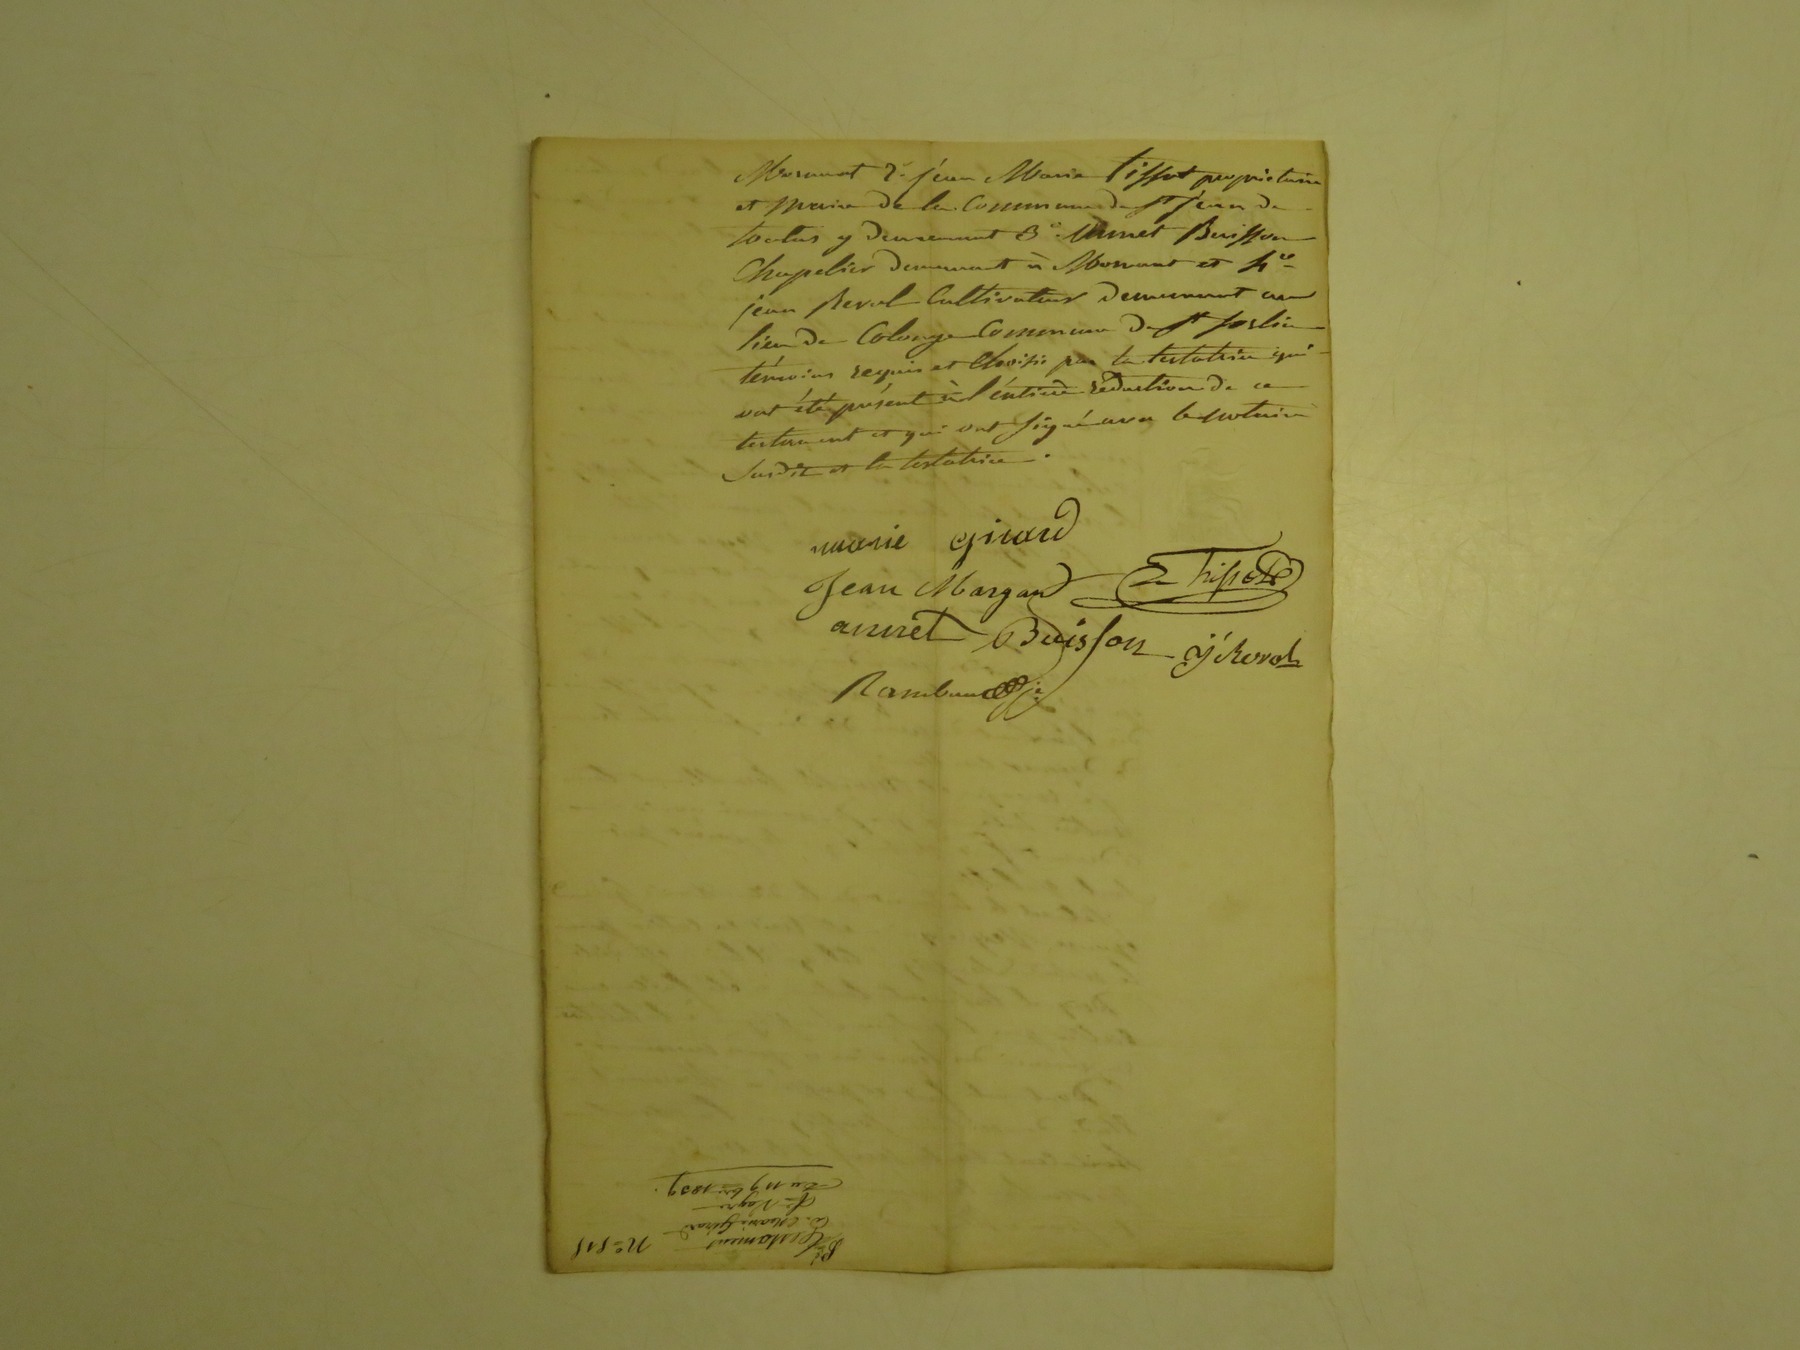 Mornant 2° jean Marie Tissot propriétaire
et maire de la Commune de St jean de
toulas y demeurant 3° Annet Buisson
Chapelier demeurant à Mornant et 4°
jean Reval Cultivateur demeurant au
lieu de Colonge Commune de St
témoins requis et choisis par la testatrice qui
ont été présent à l'entière rédaction de ce
testament et qui ont signé avec le notaire
susdit et la testatrice.
marie girard
Jean Margand Tissot
annet Buisson
Rambaud
Testament
de Marie Girard
fe Negre
du 11 9bre 1839